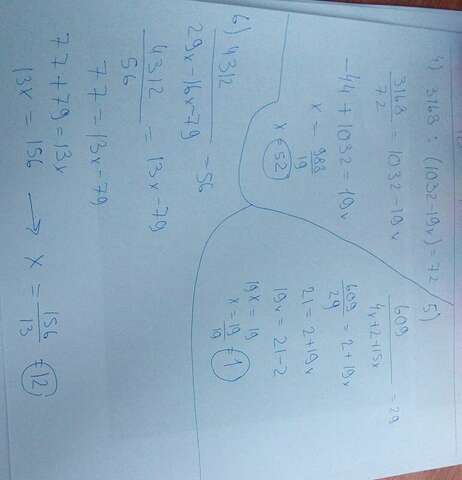 4) 3168 : (1032-19x) = 72
3168/72 = 1032-19x
-44 + 1032 = 19x
x - 988/19
x = 52
5)
609/(4x+2+15x) = 29
609/29 = 2+19x
21 = 2+19x
19x = 21-2
19x = 19
x = 19/19 = 1
6) 4312/(29x-16x-79) = 56
4312/56 = 13x-79
77 = 13x-79
77+79 = 13x
13x = 156 → x = 156/13 = 12